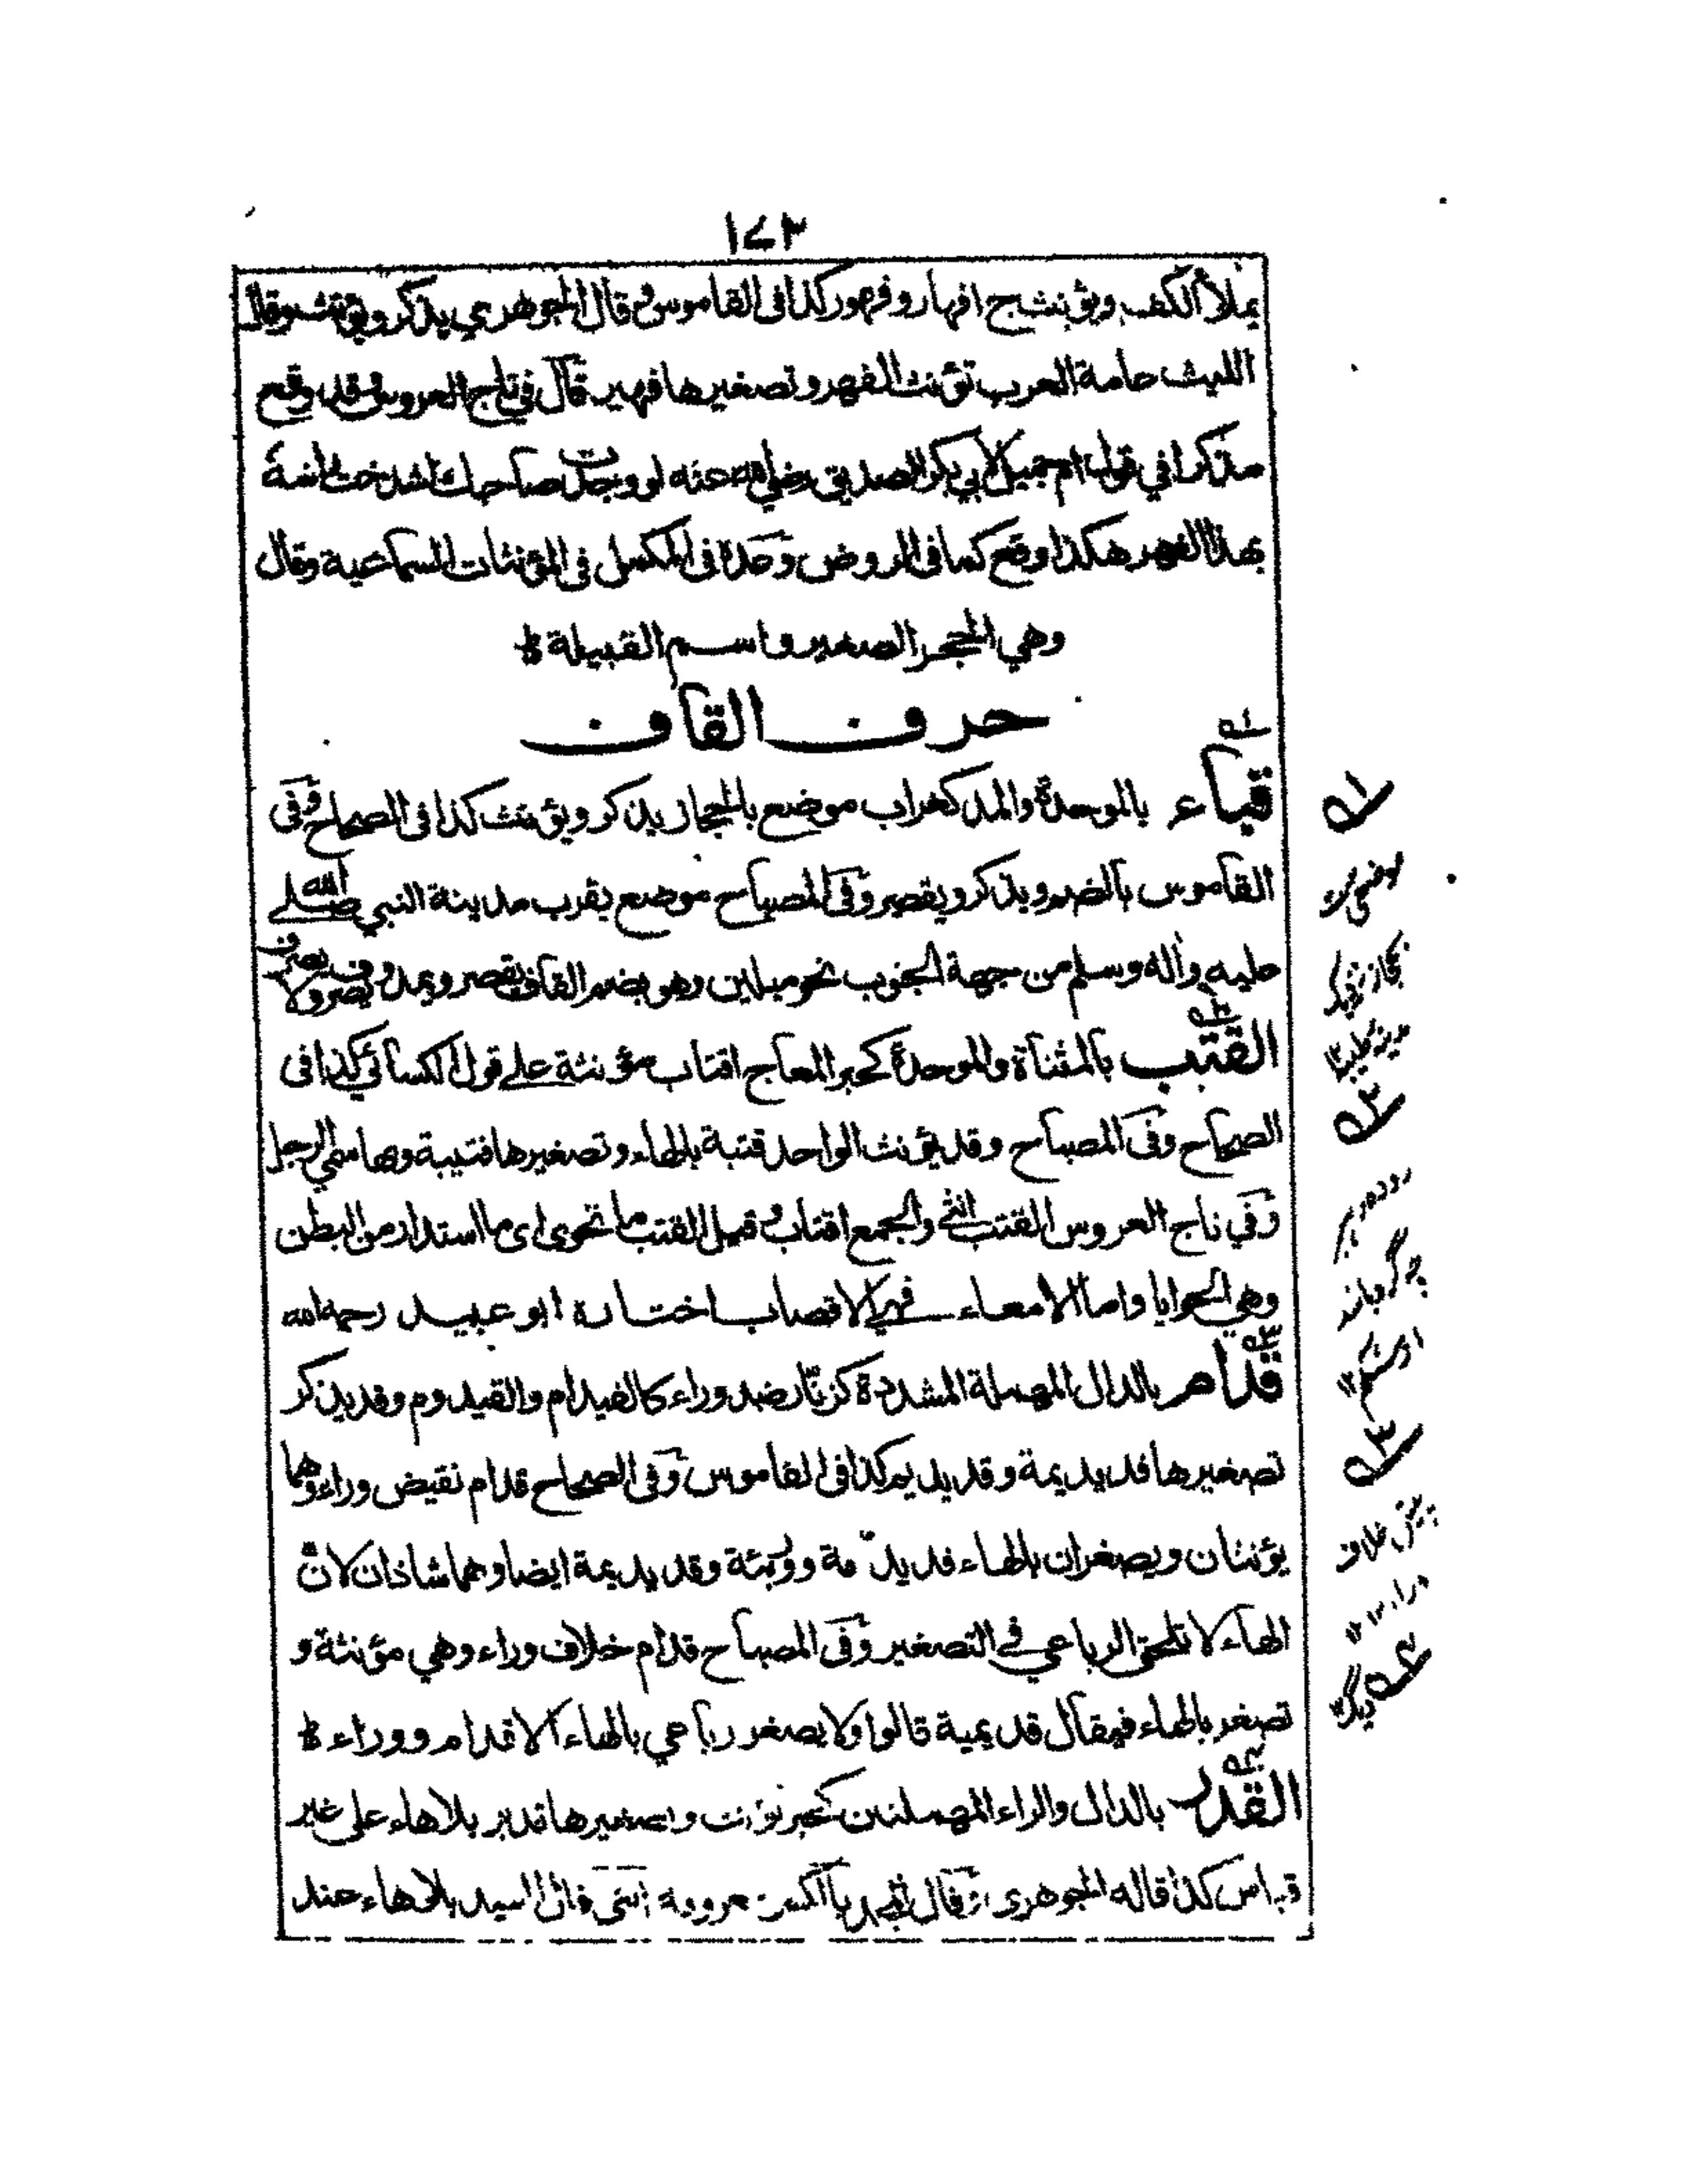 ١٧٣
يملأ الكف ويؤنث ج افهار وفهور كذا فى القاموس وقال الجوهري يذكر ويؤنث وقال
الليث عامة العرب تؤنث الفهر وتصغيرها فهير قال في تاج العروس وقد وقع
مذكرا في قول ام جميل لابي بكر الصديق رضي الله عنه لو وجدت صاحبك لشدخت راسه
بهذا الفهر هكذا وقع كما فى الروض وعده فى المكمل فى المؤنثات السماعية وقال
وهي الحجر الصغير واسم القبيلة
حرف القاف
قباء بالموحدة والمد كغراب موضع بالحجاز يذكر ويؤنث كذا فى الصحاح وفى
القاموس بالضم ويذكر ويقصر وفى المصباح موضع بقرب مدينة النبي صلے الله
عليه وآله وسلم من جهة الجنوب نحو ميلين وهو بضم القاف يقصر ويمد ويصرف ولا يصرف
القتب بالمثناة والموحدة كحبر المعاج اقتاب مؤنثة علے قول الكسائي كذا فى
الصحاح وفى المصباح وقد يؤنث الواحد قتبة بالهاء وتصغيرها قتيبة وبها سمي الرجل
وفي تاج العروس القتب انثى والجمع اقتاب وقيل القتب ما تحوى اى ما استدار من البطن
وهي الحوايا واما الامعاء فهي الاقصاب اختاره ابو عبيد رحمه الله
قدام بالدال المهملة المشددة كزنار ضد وراء كالقيدام والقيدوم وقد يذكر
تصغيرها قديديمة وقديديم كذا فى القاموس وفى الصحاح قدام نقيض وراء وهما
يؤنثان ويصغران بالهاء قديدمة ووريئة وقديديمة ايضا وهما شاذان لان
الهاء لا تلحق الرباعي في التصغير وفى المصباح قدام خلاف وراء وهي مؤنثة و
تصغر بالهاء فيقال قديديمة قالوا ولا يصغر رباعي بالهاء الا قدام ووراء
القدر بالدال والراء المهملتين كحبر تؤنث وتصغيرها قدير بلا هاء على غير
قياس كذا قاله الجوهرى وقال المجد بالكسر معروفة انثى قال السيد بلا هاء عند
١
٢
روده
چرگرداند
از شكم ١٢
٣
پيش خلاف
وراء ١٢
٤
ديگ